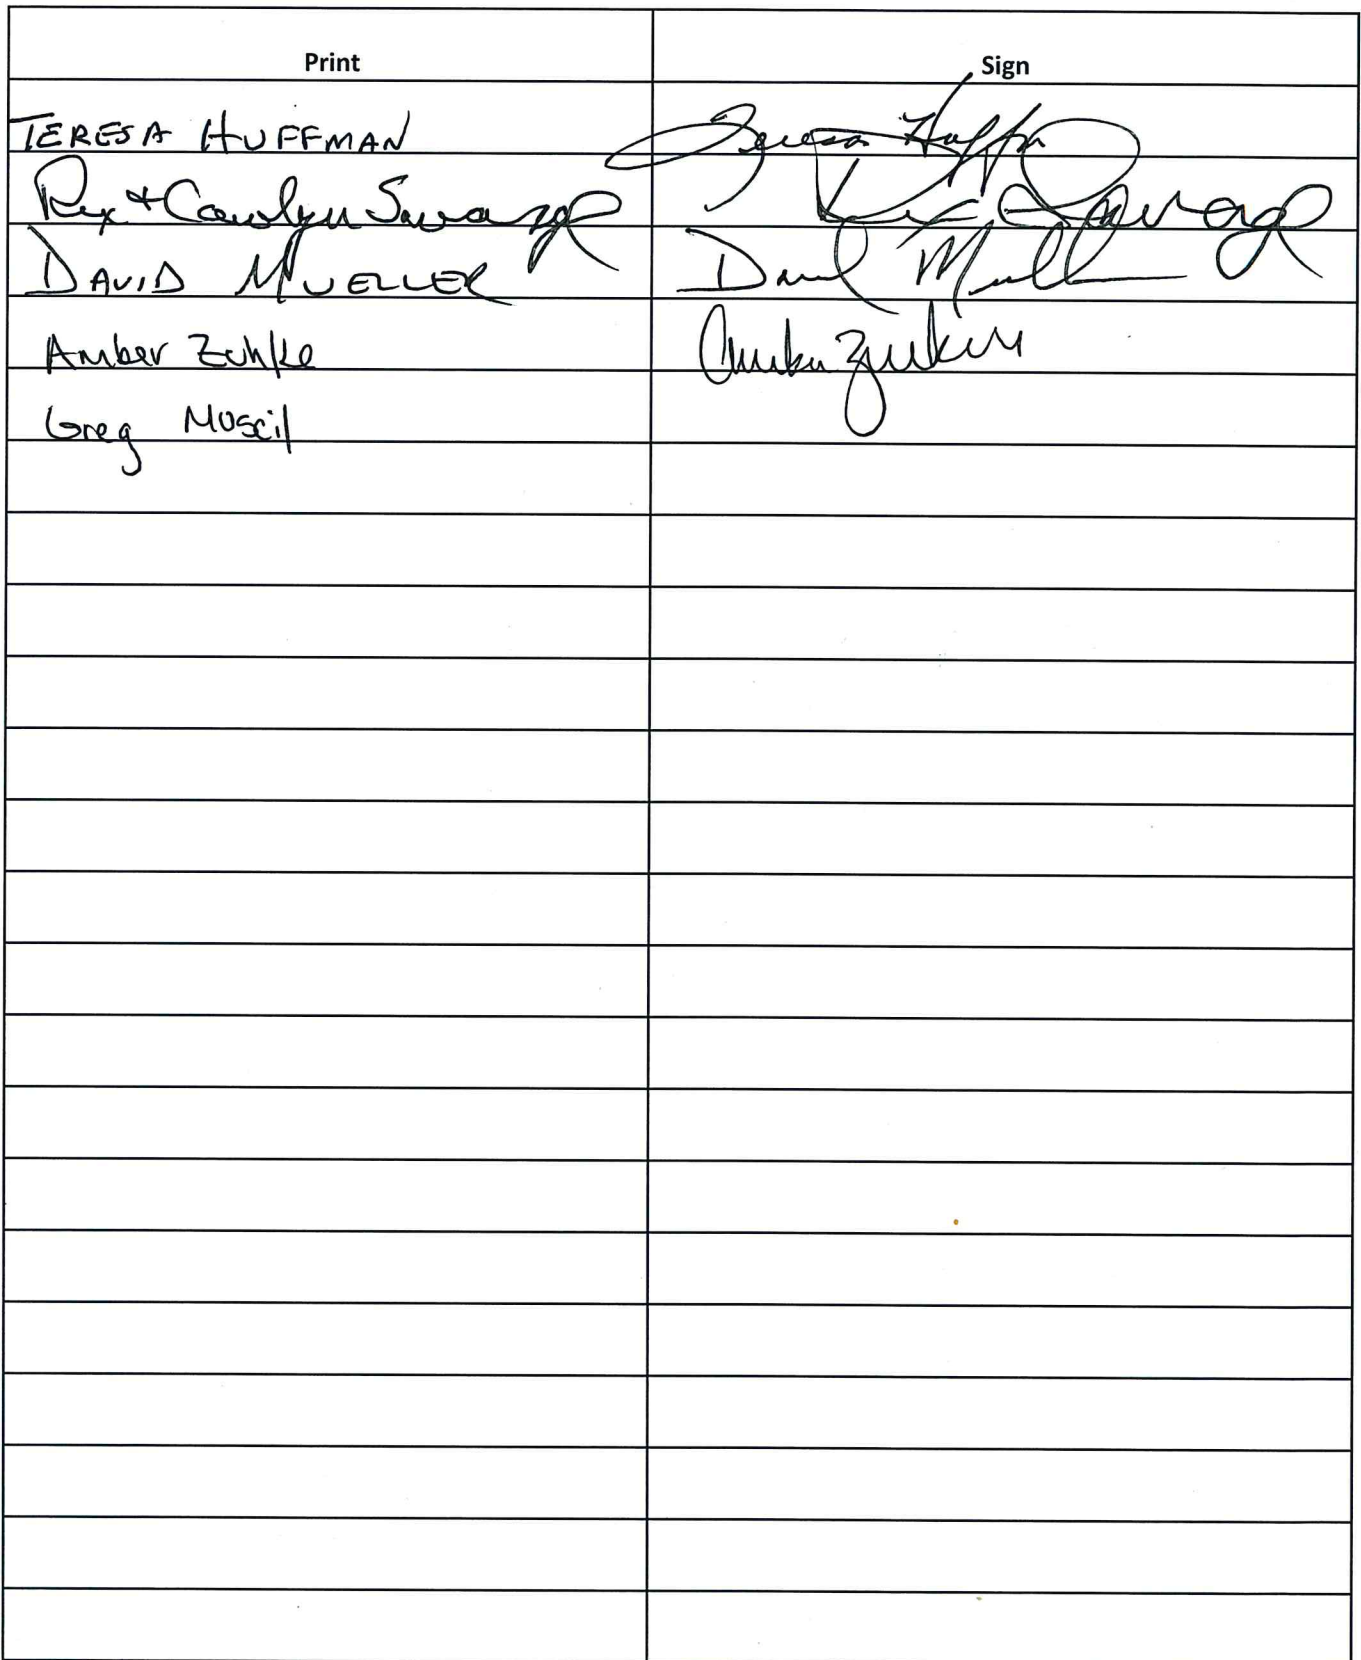 Print Sign
TERESA HUFFMAN Teresa Huffman
Rex + Carolyn Savage Rex Savage
DAVID MUELLER David Mueller
Amber Zuhlke Amber
Greg Muscil